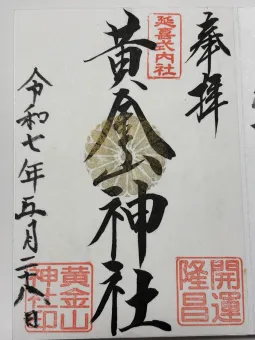 奉拝
延喜式内社
黄金山神社
開運
隆昌
黄金山
神社印
令和七年五月二十八日